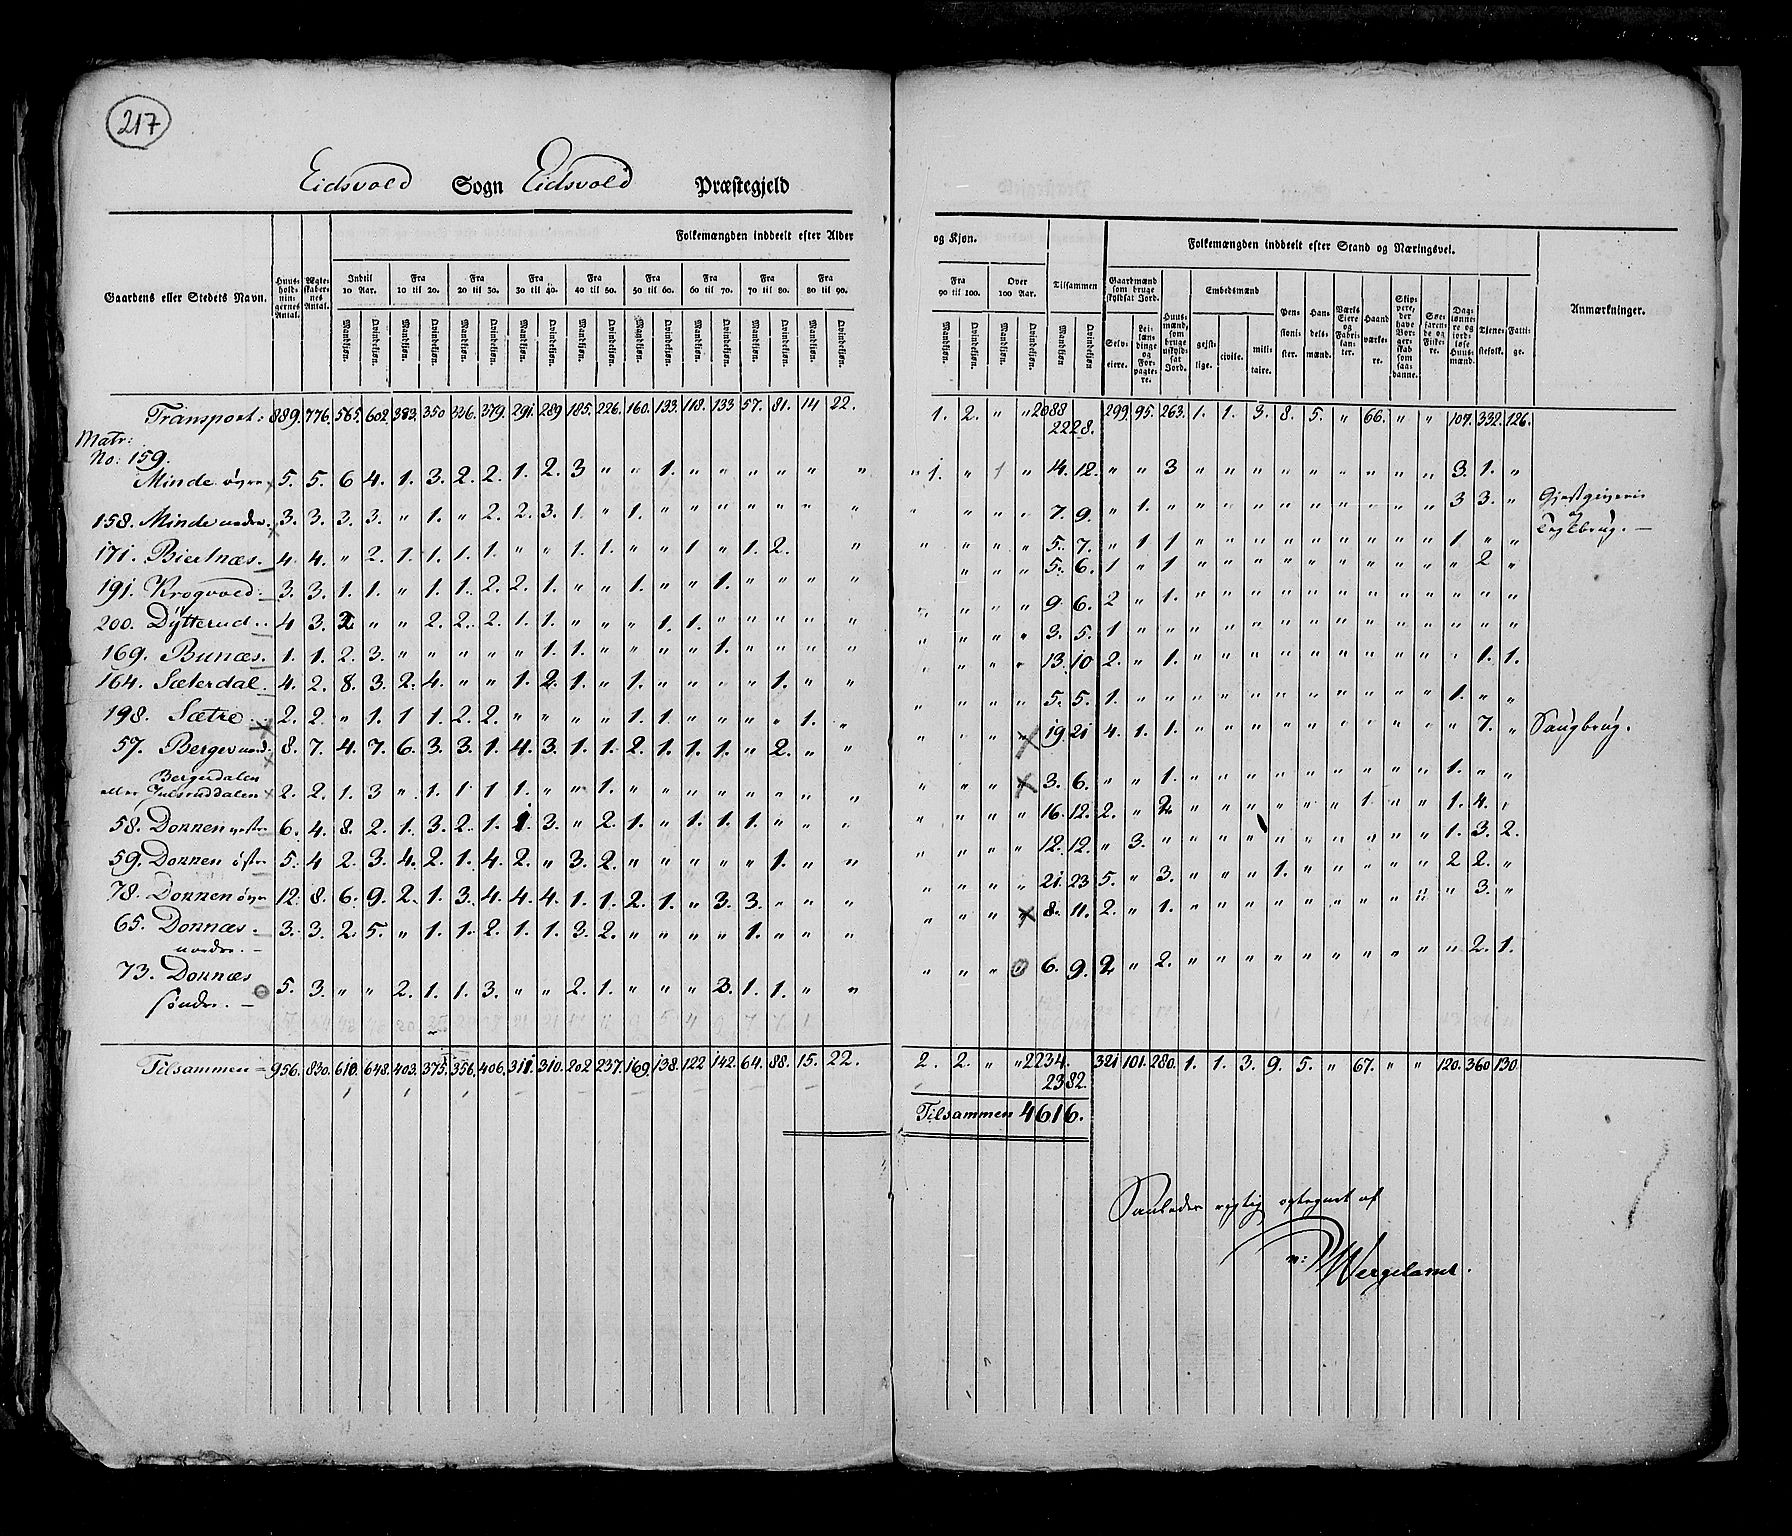 217
Eidsvold Sogn Eidsvold Præstegjeld
Folkemængden inddeelt efter Alder og Kjøn. Folkemængden inddeelt efter Stand og Næringsvei.
Gaardens eller Stedets Navn. Huusholdningernes Antal. Ægteskabernes Antal. Indtil 10 Aar. Fra 10 til 20. Fra 20 til 30. Fra 30 til 40. Fra 40 til 50. Fra 50 til 60. Fra 60 til 70. Fra 70 til 80. Fra 80 til 90. Fra 90 til 100. Over 100 Aar. Tilsammen Gaardmænd som bruge skyldsat Jord. Huusmænd, som bruge uskyldsat Jord. Embedsmænd Pensionister. Handelsmænd. Værks Eiere og Fabrikanter. Haandværkere. Skippere, der have Borgerskab som saadanne. Søefarende og Fiskere. Daglønnere og jordløse Huusmænd. Tjenestefolk. Fattige. Anmærkninger.
Mandkjøn. Qvindekjøn. Mandkjøn. Qvindekjøn. Mandkjøn. Qvindekjøn. Mandkjøn. Qvindekjøn. Mandkjøn. Qvindekjøn. Mandkjøn. Qvindekjøn. Mandkjøn. Qvindekjøn. Mandkjøn. Qvindekjøn. Mandkjøn. Qvindekjøn. Mandkjøn. Qvindekjøn. Mandkjøn. Qvindekjøn. Mandkjøn. Qvindekjøn. Selveiere. Leilændinge og Forpagtere. gejstlige. civile. militaire.
Transport: 889. 776. 565. 602. 383. 350 326. 379. 291. 289 185. 226. 160. 133. 118. 133 57. 81. 14 22. 1. 2. " " 2088 2228. 299. 95. 263. 1. 1. 3. 8. 5. " 66. " " 107. 332. 126.
Matr:
No: 159.
Minde øvre 5. 5. 6 4. 1. 3. 2. 2. 1. 2. 3 " " 1. " " " " " " 1. " 1 " 14. 12. " " 3 " " " " " " " " " 3. 1. "
158. Minde nedre. 3. 3. 3. 3. " 1. " 2. 2. 3. 1. " 1. " " " " " " " " " " " 7. 9. " 1. " " " " " " " " " " 3 3. " Gjestgiverie og Teglbrug. —
171. Biertnæs. 4. 4. " 2. 1. 1. 1. 1. " " 1. 1. " " 1 " 1. 2. " " " " " 5. 7. " 1 1 " " " " " " " " " 1 " "
191. Krogvold. 3. 3. 1. 1. " 1. 1. 2. 2. 1. " " 1. " " 1. " " " " " " " " 5. 6. 1 " 1 " " " " " " " " " " 2 "
200. Dÿtterud. 4 3. 2. " " 2. 2. 2. 1. 1. " " " 1. 1. " " " " " " " " " 9. 6. 2 " 1. " " " " " " " " " " " "
169. Bunæs. 1. 1. 2. 3. " " " " " 1. 1. " " " " 1. " " " " " " " " 3. 5. 1 " " " " " " " " " " " " " "
164. Sæterdal. 4. 2. 8. 3. 2. 4. " " 1. 2. 1. " 1. " " " " 1. " " " " " " 13. 10 2. " 1. " " " " " " " " " " 1. 1.
198. Sætre. 2. 2. " 1. 1 1. 2. 2. " " " " 1. 1. " " " " 1. " " " " " 5. 5. 1. " " " " " " " " " " " 1. " "
57. Berger nord. 8. 7. 4. 7. 6. 3. 3. 1. 4. 3. 1. 1. 2. 1. 1. 1. " 2. " " " " " " 19. 21 4. 1. 1. " " " " " " " " " " 7. " Saugbrug.
Bergerdalen
eller Julsruddalen 2. 2. 1. 3 " 1. 1 1 1. " " 1. " " " " " " " " " " " 3. 6. " " 1. " " " " " " " " " 1. " "
58. Donnen vestre 6. 4. 8. 2. 1. 3. 2. 1. 1. 3. " 2. 1. " 1. 1. 1. " " " " " " 16. 12. 2. " 2 " " " " " " 1. " " 1. 4. "
59. Donnen østre 5. 4 2. 3. 4. 2. 1. 4. 2. " 3. 2. " " " " " 1. " " " " " " 12. 12. " 3. " " " " " " " " " " 1. 3. 2.
78. Donnen øvre 12. 8. 6. 9. 2. 1. 3. 4. 4. 4. 1. 1. 2. 1. " 3. 3. " " " " " " " 21. 23 5. " 3. " " " 1. " " " " " 2 2. "
65. Donnæs nordre. — 3. 3. 2. 5. " 1. 1. 2. 1. 1. 3. 2. " " " " 1. " " " " " " 8. 11. 2. " 1. " " " " " " " " " " 3. "
73. Donnæs søndre. — 5. 3. " " 2. 1. 1. 3. " " 2. 1. " " " 3. 1. 1. " " " " " 6. 9. 2 " 2. " " " " " " " " " " 2. 1.
Tilsammen = 956. 830. 610. 648. 403. 375. 356. 406. 311. 310. 202 237. 169. 138. 122 142. 64. 88. 15. 22. 2. 2. " " 2234. 2382. 321 101. 280. 1. 1. 3. 9. 5. " 67. " " 120. 360 130
Tilsammen 4616.
Saaledes rigtig optegnet af
N: Wergeland.